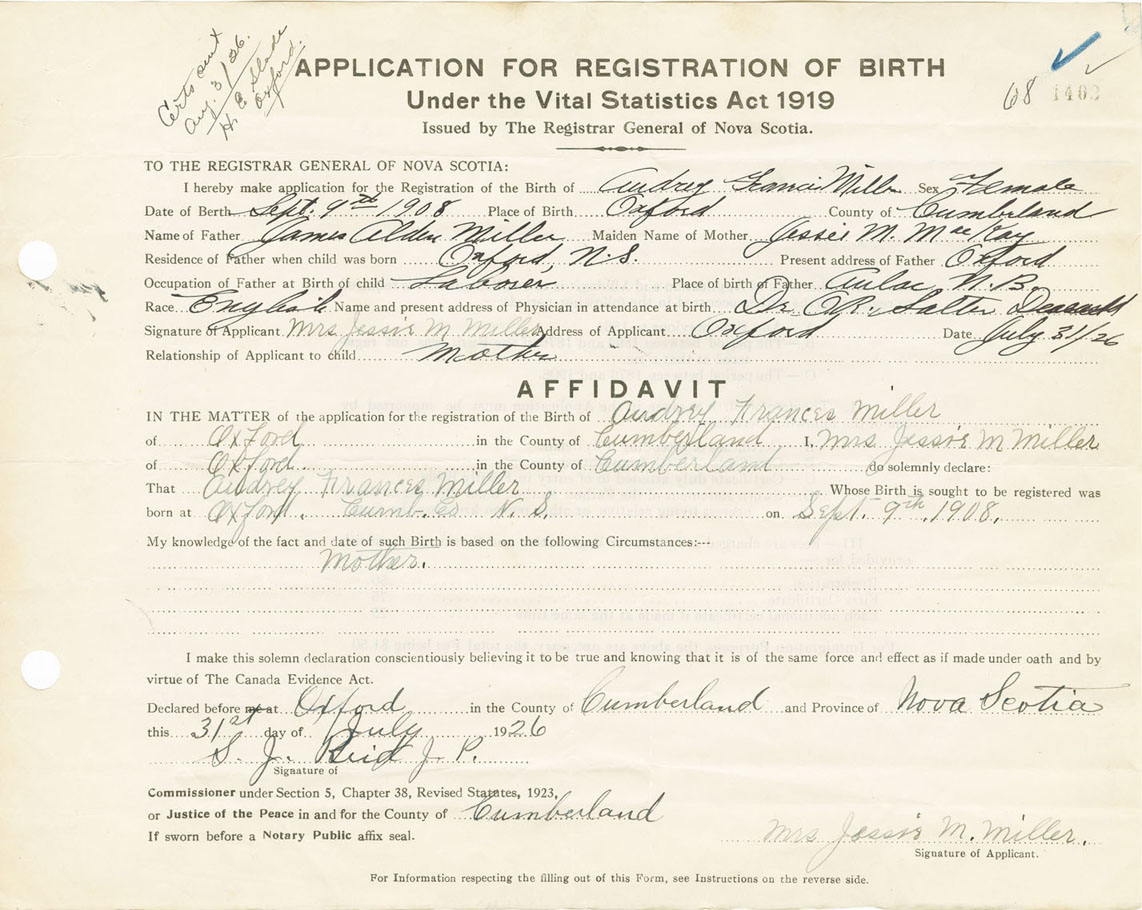 Certs sent
Aug. 3/26.
H. E. Slade
Oxford.
APPLICATION FOR REGISTRATION OF BIRTH
Under the Vital Statistics Act 1919
Issued by The Registrar General of Nova Scotia.
68 1402
TO THE REGISTRAR GENERAL OF NOVA SCOTIA:
I hereby make application for the Registration of the Birth of Audrey Francis Miller Sex Female
Date of Berth Sept. 9th 1908 Place of Birth Oxford County of Cumberland
Name of Father James Alden Miller Maiden Name of Mother Jessie M. MacKay
Residence of Father when child was born Oxford, N.S. Present address of Father Oxford
Occupation of Father at Birth of child Laborer Place of birth of Father Aulac N.B.
Race English Name and present address of Physician in attendance at birth Dr. Deceased
Signature of Applicant Mrs Jessie M Miller Address of Applicant Oxford Date July 31/26
Relationship of Applicant to child Mother
AFFIDAVIT
IN THE MATTER of the application for the registration of the Birth of Audrey Frances Miller
of Oxford in the County of Cumberland I, Mrs Jessie M Miller
of Oxford in the County of Cumberland do solemnly declare:
That Audrey Frances Miller Whose Birth is sought to be registered was
born at Oxford. Cumb. Co N. S. on Sept. 9th. 1908.
My knowledge of the fact and date of such Birth is based on the following Circumstances:---
Mother.
I make this solemn declaration conscientiously believing it to be true and knowing that it is of the same force and effect as if made under oath and by
virtue of The Canada Evidence Act.
Declared before me at Oxford in the County of Cumberland and Province of Nova Scotia
this 31st day of July 1926
S. J. Reid J. P.
Signature of
Commissioner under Section 5, Chapter 38, Revised Statutes, 1923,
or Justice of the Peace in and for the County of Cumberland
If sworn before a Notary Public affix seal.
Mrs Jessie M. Miller.
Signature of Applicant.
For Information respecting the filling out of this Form, see Instructions on the reverse side.